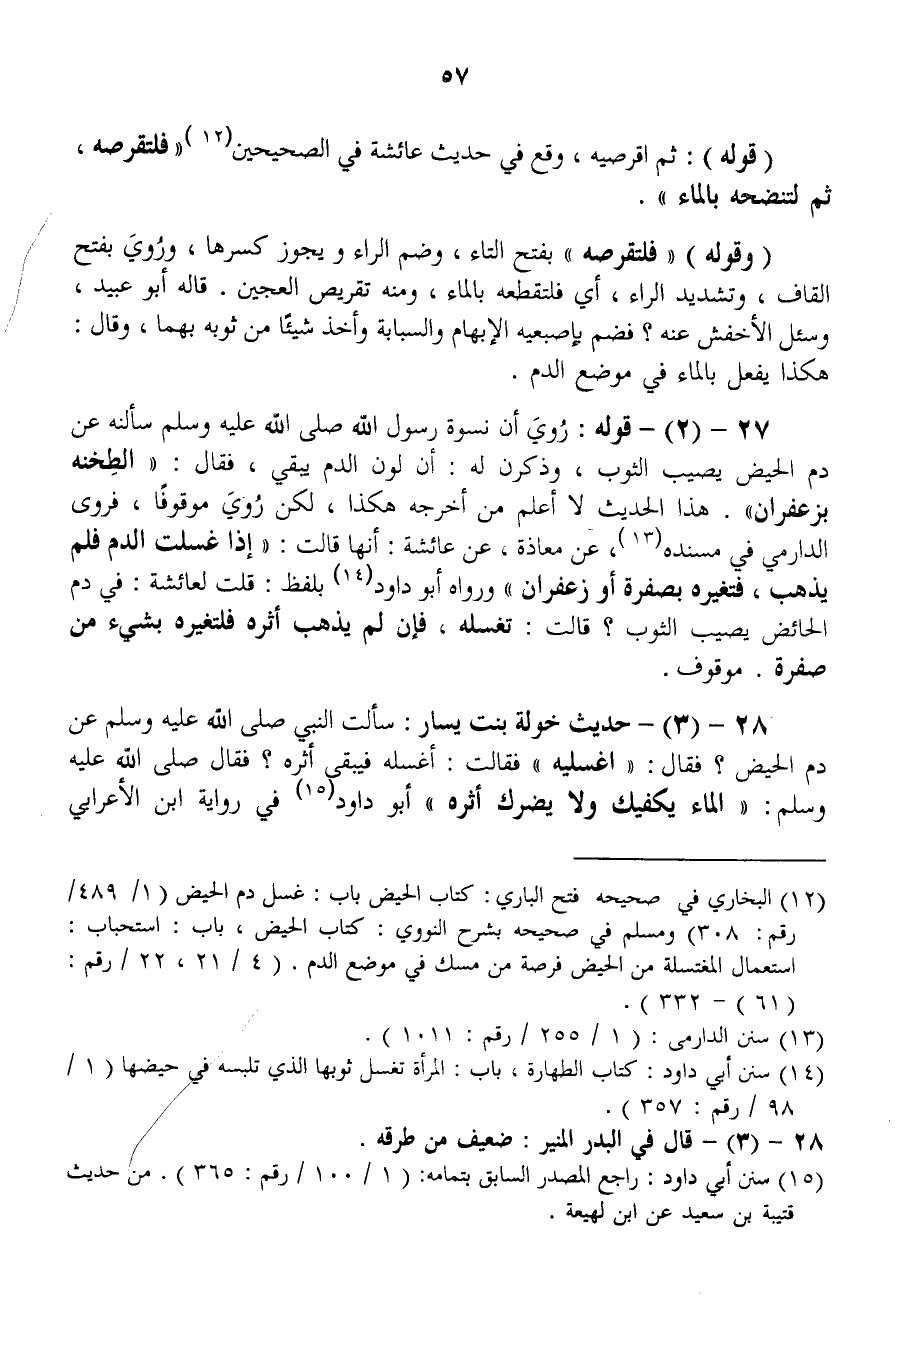 ٥٧
( قوله ) : ثم اقرصيه ، وقع في حديث عائشة في الصحيحين(١٢)« فلتقرصه ،
ثم لتنضحه بالماء » .
( وقوله ) « فلتقرصه » بفتح التاء ، وضم الراء و يجوز كسرها ، ورُويَ بفتح
القاف ، وتشديد الراء ، أي فلتقطعه بالماء ، ومنه تقريص العجين . قاله أبو عبيد ،
وسئل الأخفش عنه ؟ فضم بإصبعيه الإبهام والسبابة وأخذ شيئًا من ثوبه بهما ، وقال :
هكذا يفعل بالماء في موضع الدم .
٢٧ – (٢) – قوله : رُويَ أن نسوة رسول الله صلى الله عليه وسلم سألنه عن
دم الحيض يصيب الثوب ، وذكرن له : أن لون الدم يبقي ، فقال : « الطِخنه
بزعفران» . هذا الحديث لا أعلم من أخرجه هكذا ، لكن رُويَ موقوفًا ، فروى
الدارمي في مسنده(١٣)، عن معاذة ، عن عائشة : أنها قالت : « إذا غسلت الدم فلم
يذهب ، فتغيره بصفرة أو زعفران » ورواه أبو داود(١٤) بلفظ : قلت لعائشة : في دم
الحائض يصيب الثوب ؟ قالت : تغسله ، فإن لم يذهب أثره فلتغيره بشيء من
صفرة . موقوف .
٢٨ – (٣) – حديث خولة بنت يسار : سألت النبي صلى الله عليه وسلم عن
دم الحيض ؟ فقال : « اغسليه » فقالت : أغسله فيبقى أثره ؟ فقال صلى الله عليه
وسلم : « الماء يكفيك ولا يضرك أثره » أبو داود(١٥) في رواية ابن الأعرابي
(١٢) البخاري في صحيحه فتح الباري : كتاب الحيض باب : غسل دم الحيض ( ١/ ٤٨٩/
رقم : ٣٠٨) ومسلم في صحيحه بشرح النووي : كتاب الحيض ، باب : استحباب :
استعمال المغتسلة من الحيض فرصة من مسك في موضع الدم . ( ٤ / ٢١ ، ٢٢ / رقم :
( ٦١ ) – ٣٣٢ ) .
(١٣) سنن الدارمى : ( ١ / ٢٥٥ / رقم : ١٠١١ ) .
(١٤) سنن أبي داود : كتاب الطهارة ، باب : المرأة تغسل ثوبها الذي تلبسه في حيضها ( ١ /
٩٨ / رقم : ٣٥٧ ) .
٢٨ – (٣) – قال في البدر المنير : ضعيف من طرقه .
(١٥) سنن أبي داود : راجع المصدر السابق بتمامه: ( ١ / ١٠٠ / رقم : ٣٦٥ ) . من حديث
قتيبة بن سعيد عن ابن لهيعة .